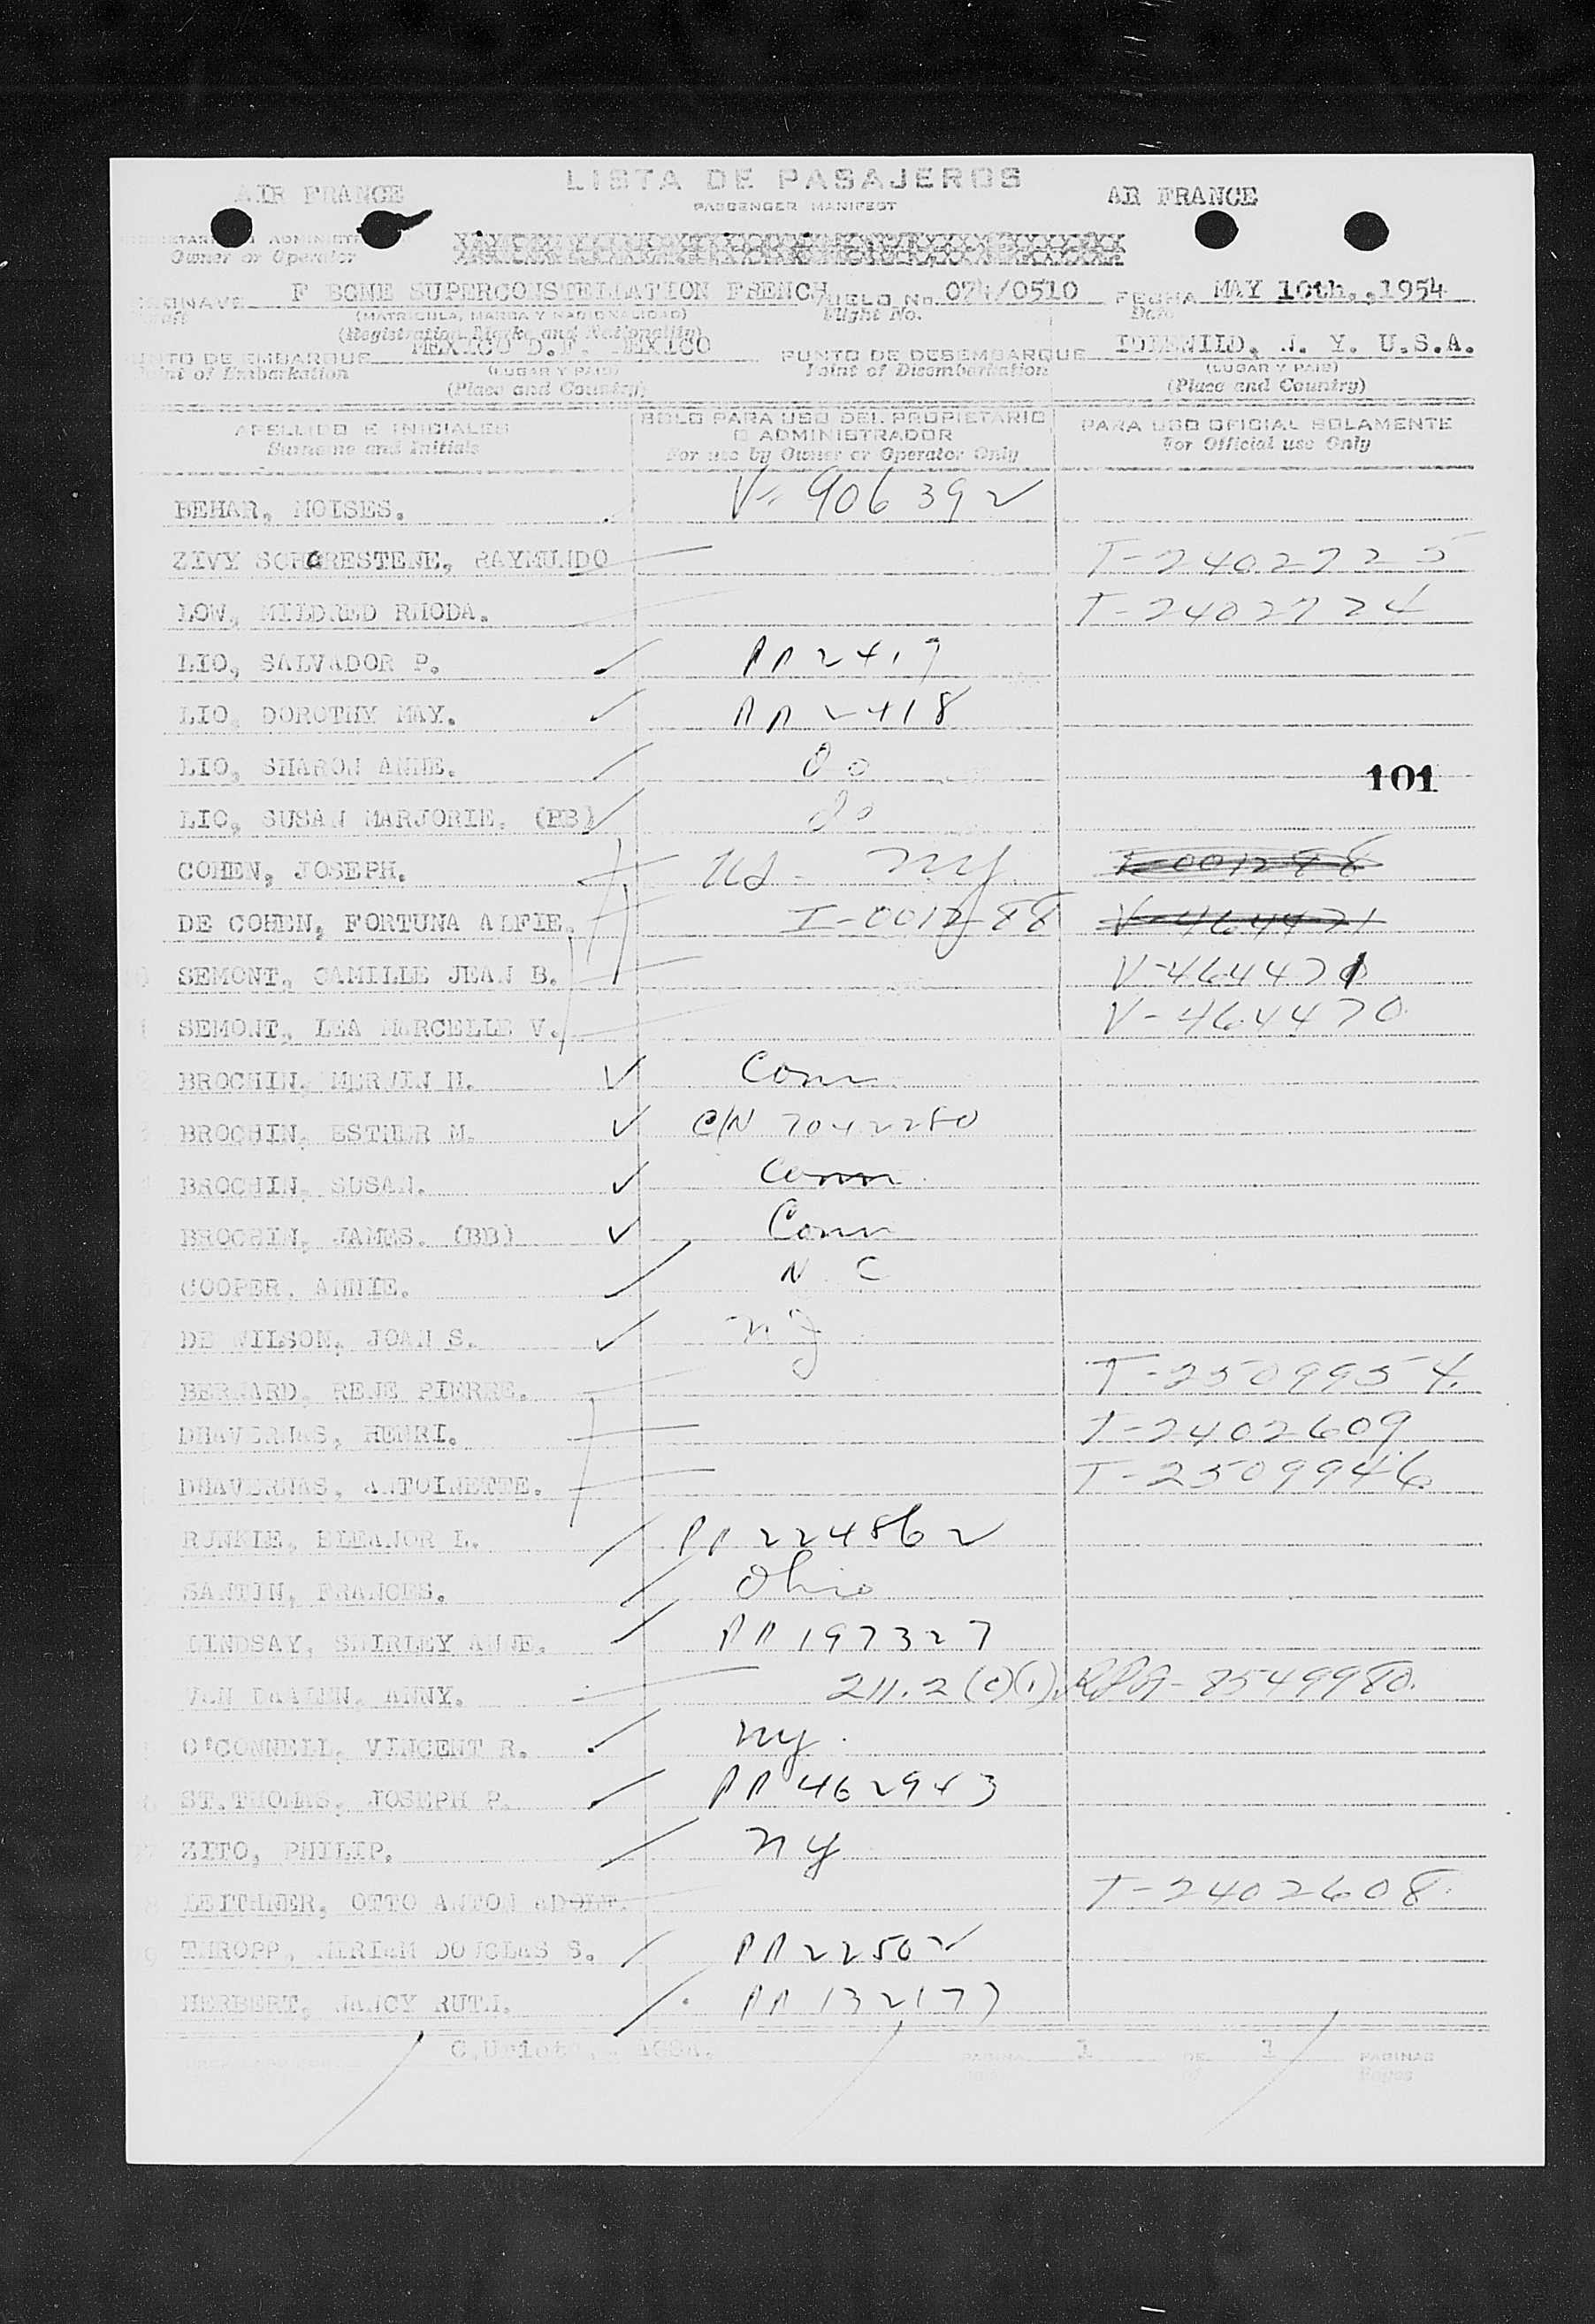 AIR FRANCE LISTA DE PASAJEROS AR FRANCE
PASSENGER MANIFEST
Owner or Operator
F BGNE SUPERCONSTELLATION FRENCH VUELO No. 074/0510 FECHA MAY 10th.,1954
(MATRICULA, MARCA Y NACIONALIDAD) Flight No. Date
(Registration Marks and Nationality)
PUNTO DE EMBARQUE MEXICO D.F. MEXICO PUNTO DE DESEMBARQUE IDLEWILD, N. Y. U.S.A.
Point of Embarkation (LUGAR Y PAIS) Point of Disembarkation (LUGAR Y PAIS)
(Place and Country) (Place and Country)
APELLIDO E INICIALES SOLO PARA USO DEL PROPIETARIO O ADMINISTRADOR PARA USO OFICIAL SOLAMENTE
Surname and Initials For use by Owner or Operator Only For Official use Only
BEHAR, MOISES. V-906392
ZIVY SCHORESTENE, RAYMUNDO T-2402725
LOW, MILDRED RHODA. T-2402724
LIO, SALVADOR P. PP2419
LIO, DOROTHY MAY. PP2418
LIO, SHARON ANNE. do
101
LIO, SUSAN MARJORIE. (BB) do
COHEN, JOSEPH. US - NY I-001288
DE COHEN, FORTUNA ALFIE. I-001288 V-464471
SEMONT, CAMILLE JEAN B. V-464471
SEMONT, LEA MARCELLE V. V-464470
BROCHIN, MERVIN H. Conn
BROCHIN, ESTHER M. C/N 7042280
BROCHIN, SUSAN. Conn
BROCHIN, JAMES. (BB) Conn
COOPER, ANNIE. N. C
DE WILSON, JOAN S. NJ
BERNARD, RENE PIERRE. T-2509954
DHAVERNAS, HENRI. T-2402609
DHAVERNAS, ANTOINETTE. T-2509946
RUNKIE, ELEANOR L. PP 224862
SANTIN, FRANCES. Ohio
LINDSAY, SHIRLEY ANNE. PP 197327
VAN DAALEN, ANNY. 211.2(c)(1). - 8549980.
O'CONNELL, VINCENT R. NY.
ST.THOMAS, JOSEPH P. PP 462943
ZITO, PHILIP. NY
LEITHNER, OTTO ANTON ADOLF. T-2402608
THROPP, MIRIAM DOUGLAS S. PP 22502
HERBERT, NANCY RUTH. PP 132177
PAGINA 1 DE 1 PAGINAS
of Pages